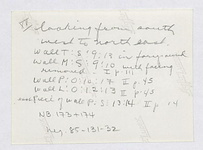 looking from south
west to north east
wall T: S: 9:13 in foreground
wall M: S: 9:10 with facing
removed. I p. 11
wall P: O: 12:17 II p. 45
wall L: O: 12:13 II p. 43
of wall P. S: 13:14 II p. 14
NB: 173+174
Neg. 85-131-32